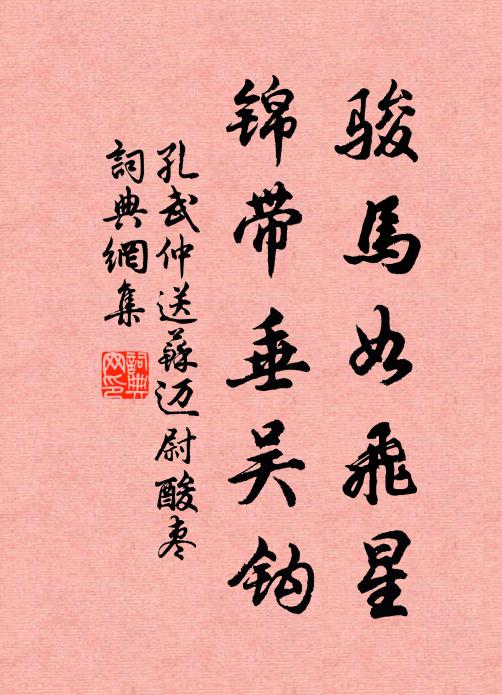 骏馬如飛星
锦带垂吴钩
孔武仲送蘇迈尉酸枣
詞典網集
詞典网印